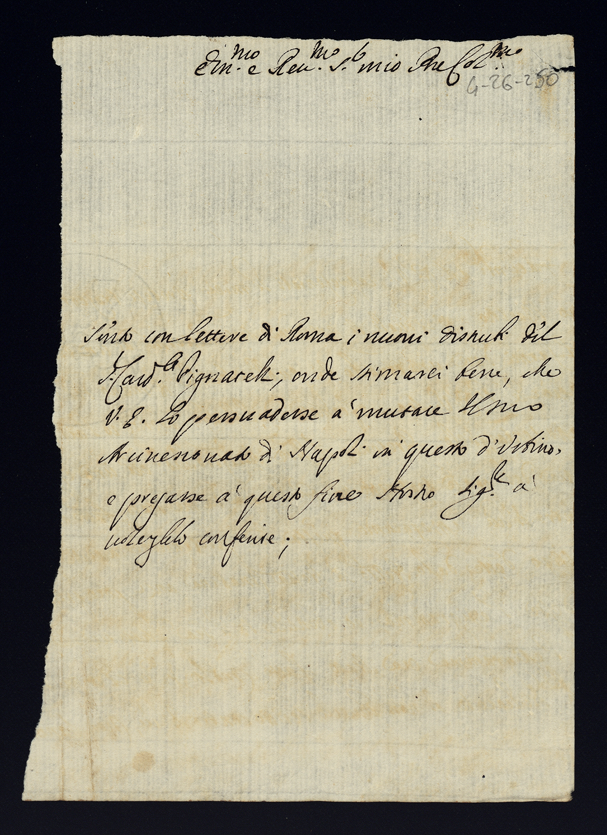 Em.mo e Reu.mo S.r mio P.ne Col.mo
4-26-250
Sento con lettere di Roma i nuoui disturbi del
S. Card.le Pignatelli, onde stimarei bene, che
V. E. lo persuadesse a' mutare il suo
Arciuescouado di Napoli in questo d'Urbino,
e pregasse a' questo fine Nostro Sig.re a'
uolerglielo conferire;